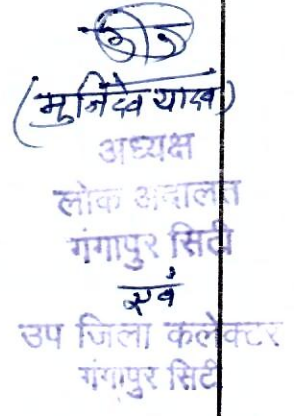 (मुनिदेव यादव)
अध्यक्ष
लोक अदालत
गंगापुर सिटी
एवं
उप जिला कलेक्टर
गंगापुर सिटी